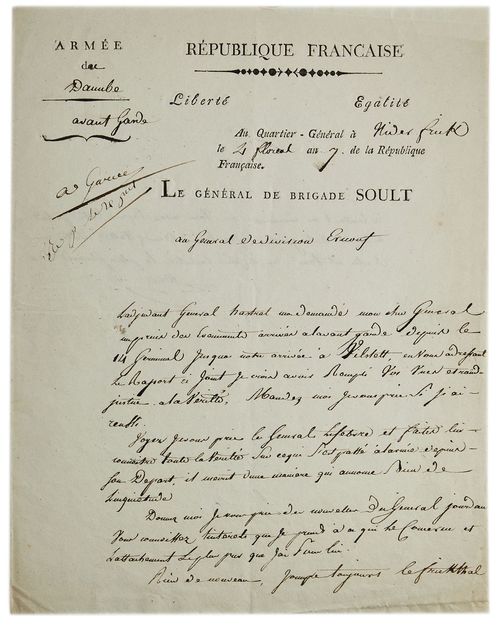 ARMÉE
du
Danube
avant Garde
RÉPUBLIQUE FRANCAISE
Liberté Egalité
Au Quartier-Général à
le 4 floreal an 7 de la République
Française.
LE GÉNÉRAL DE BRIGADE SOULT
au General de division Ernouf
Ladjudant General ma demandé mon cher General
un precis des Evenements arrivés a lavant garde depuis le
14 Germinal Jusqua notre arrivée à en Vous adressant
Le Raport ci Joint Je crois avoir Rempli Vos Vues et rendu
justice a la Verité, Mandez moi je vous prie si j'ai
reussi
Voyez je vous prie le General Lefebvre et faites lui
connaitre toute la Verité Sur ce que S'est passé a larmée depuis
son Depart, il ecrit d'une maniere qui annonce Bien de
Linquietude
Donnez moi Je vous prie des nouvelles du General jourdan
Vous connaissez linterets que Je prend a ce qui Le Concerne et
Lattachement Le plus que Jai Pour lui.
Rien de nouveau, toujours le frickthal